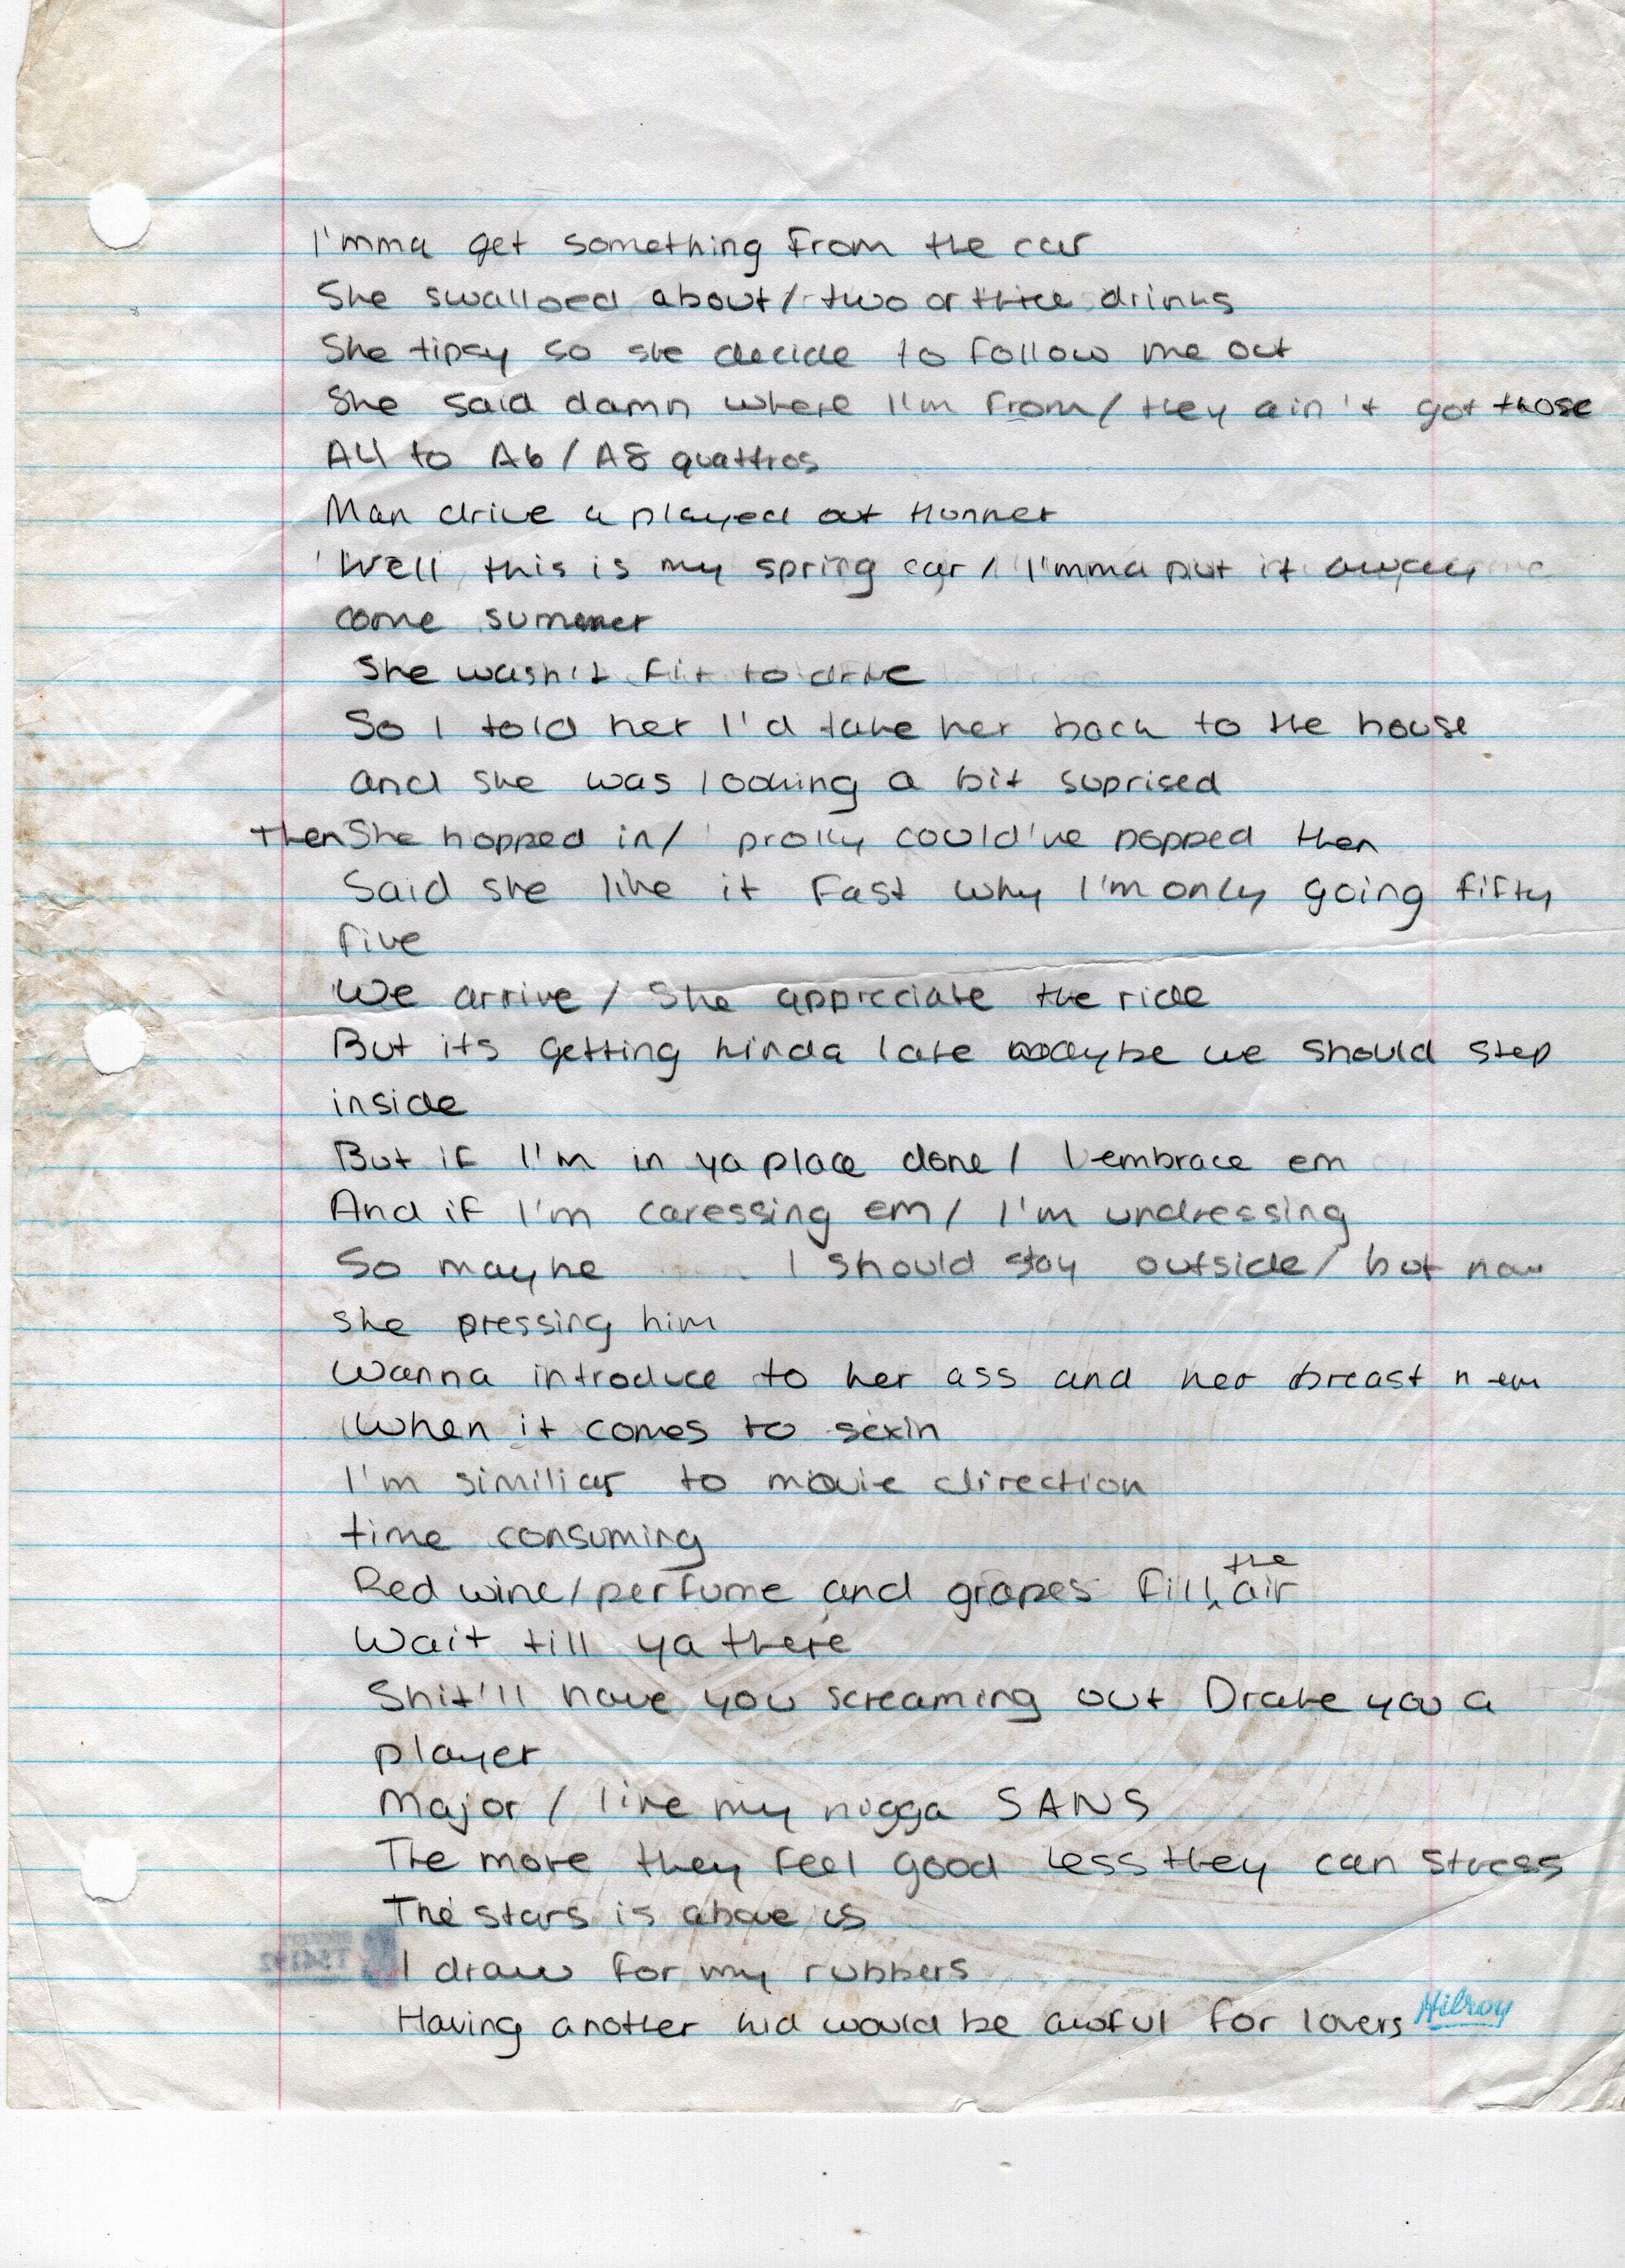 I'mma get something from the car
She swalloed about / two or three drinks
She tipsy so she decide to follow me out
She said damn where I'm from / they ain't got those
A4 to A6 / A8 quattros
Man drive a played out Hummer
Well this is my spring car / I'mma put it away
come summer
She wasn't fit to drive
So I told her I'd take her back to the house
and she was looking a bit suprised
then She hopped in / prolly could've popped then
Said she like it fast why I'm only going fifty
five
We arrive / She appreciate the ride
But its getting kinda late maybe we should step
inside
But if I'm in ya place done / I embrace em
And if I'm caressing em / I'm undressing
So maybe I should stay outside / but now
she pressing him
Wanna introduce to her ass and her breast n em
When it comes to sexin
I'm similiar to movie direction
time consuming
Red wine / perfume and grapes fill the air
Wait till ya there
Shit'll have you screaming out Drake you a
player
Major / like my nigga SANS
The more they feel good less they can stress
The stars is above us
I draw for my rubbers
Having another kid would be awful for lovers
Hilroy